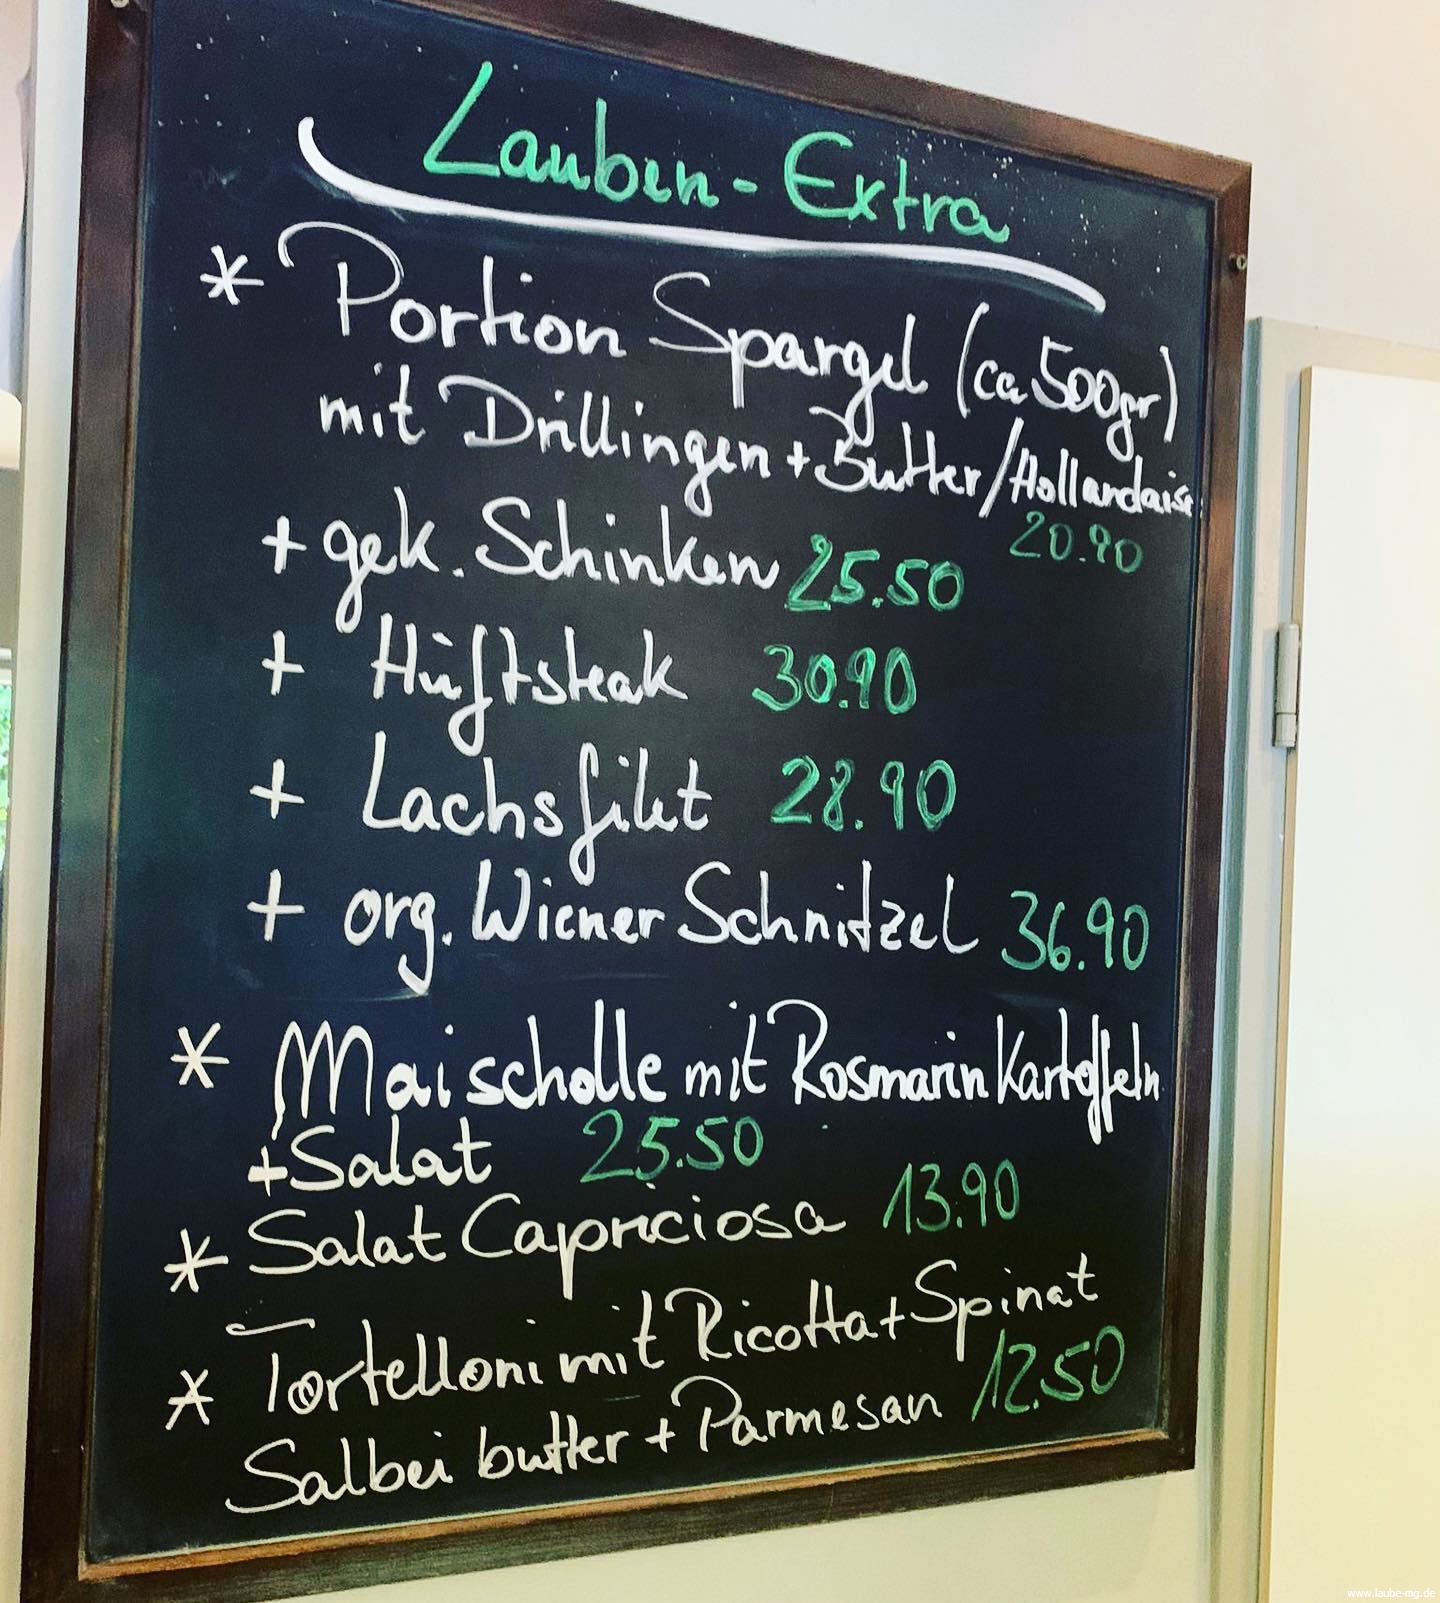 Lauben-Extra
* Portion Spargel (ca 500gr)
mit Drillingen + Butter/Hollandaise
20.90
+ gek. Schinken 25.50
+ Hüftsteak 30.90
+ Lachsfilet 28.90
+ org. Wiener Schnitzel 36.90
* Maischolle mit Rosmarin Kartoffeln
+ Salat 25.50
* Salat Capriciosa 13.90
* Tortelloni mit Ricotta + Spinat
Salbei butter + Parmesan 12.50
www.laube-mg.de